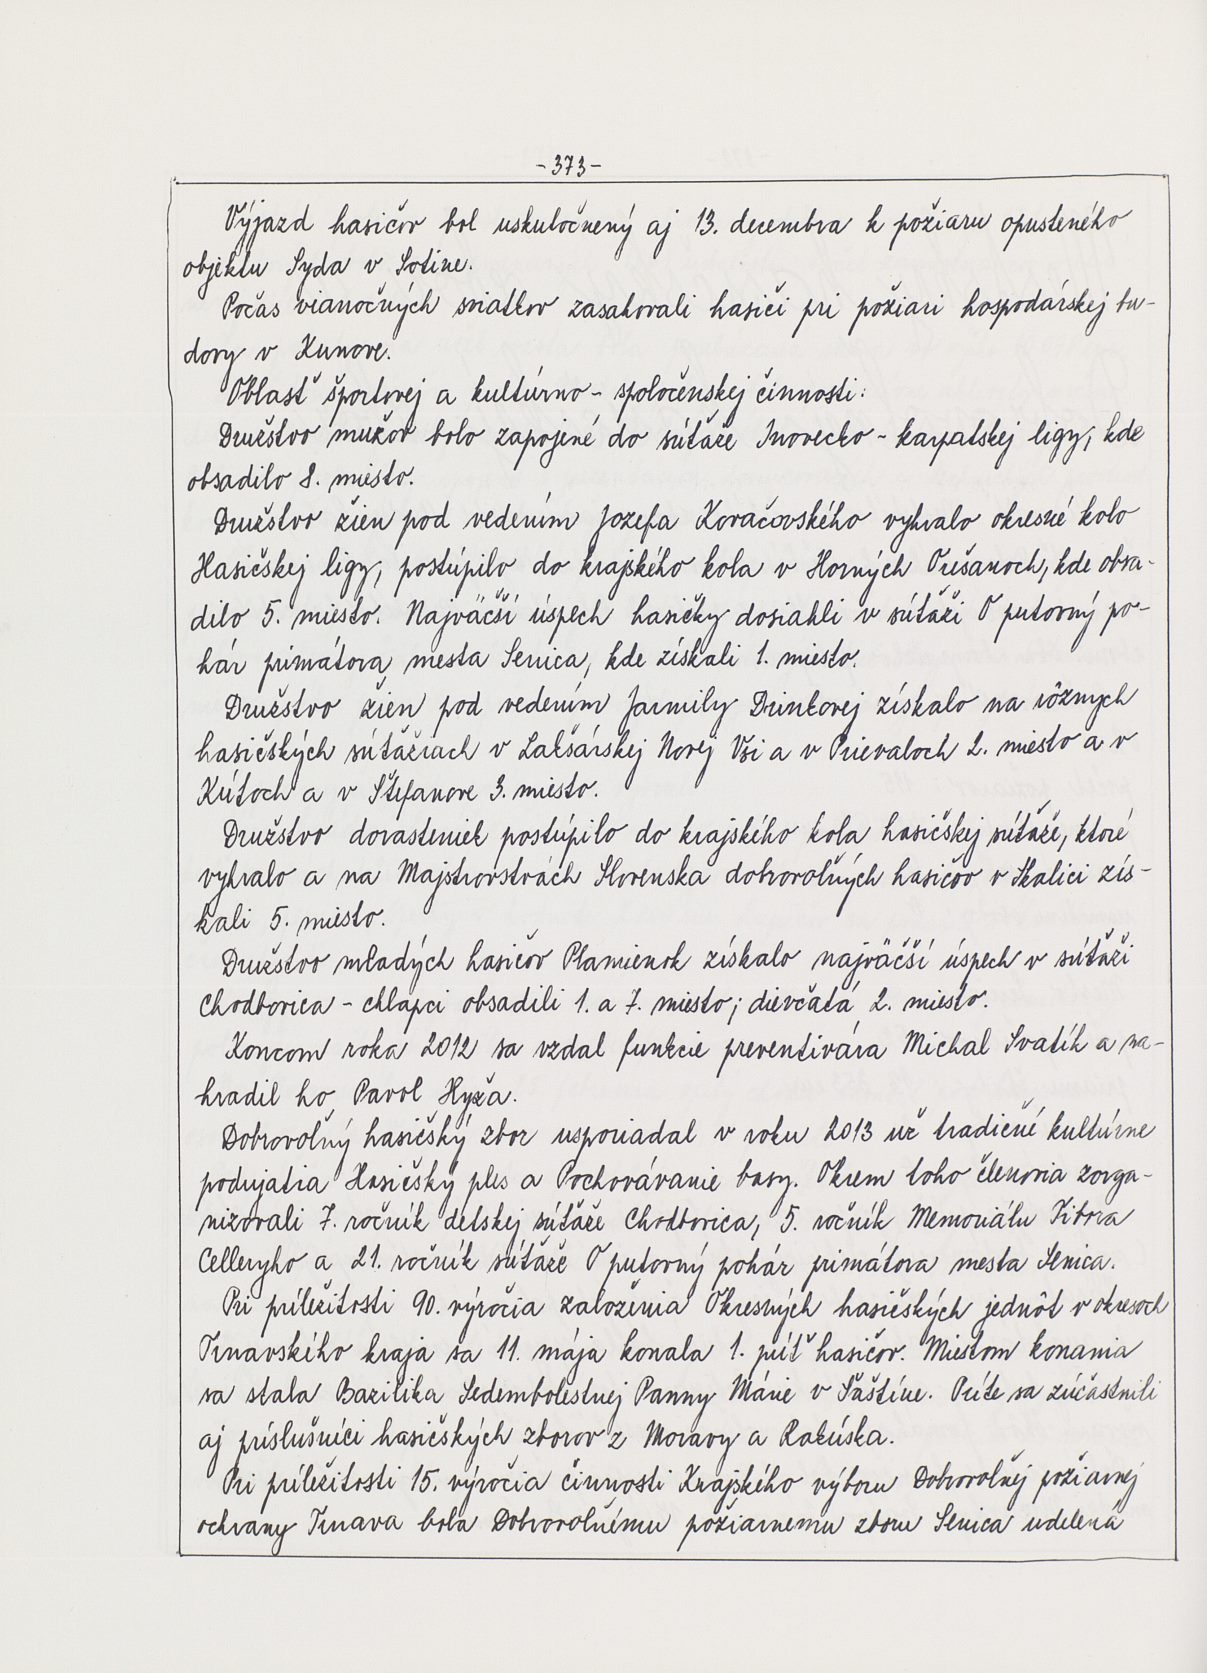 -373-
Výjazd hasičov bol uskutočnený aj 13. decembra k požiaru opusteného
objektu Syda v Sotine.
Počas vianočných sviatkov zasahovali hasiči pri požiari hospodárskej bu-
dovy v Kunove.
Oblasť športovej a kultúrno - spoločenskej činnosti:
Družstvo mužov bolo zapojené do súťaže Inovecko - karpatskej ligy, kde
obsadilo 8. miesto.
Družstvo žien pod vedením Jozefa Kovačovského vyhralo okresné kolo
Hasičskej ligy, postúpilo do krajského kola v Horných Orešanoch, kde obsa-
dilo 5. miesto. Najväčší úspech hasičky dosiahli v súťaži O putovný po-
hár primátora mesta Senica, kde získali 1. miesto.
Družstvo žien pod vedením Jarmily Drinkovej získalo na rôznych
hasičských súťažiach v Lakšárskej Novej Vsi a v Prievaloch 2. miesto a v
Kútoch a v Štefanove 3. miesto.
Družstvo dorasteniek postúpilo do krajského kola hasičskej súťaže, ktoré
vyhralo a na Majstrovstvách Slovenska dobrovoľných hasičov v Skalici zís-
kali 5. miesto.
Družstvo mladých hasičov Plamienok získalo najväčší úspech v súťaži
Chodbovica - chlapci obsadili 1. a 7. miesto; dievčatá 2. miesto.
Koncom roka 2012 sa vzdal funkcie preventivára Michal Svatík a na-
hradil ho Pavol Hyža.
Dobrovoľný hasičský zbor usporiadal v roku 2013 už tradičné kultúrne
podujatia Hasičský ples a Pochovávanie basy. Okrem toho členovia zorga-
nizovali 7. ročník detskej súťaže Chodbovica, 5. ročník Memoriálu Tibora
Celleryho a 21. ročník súťaže O putovný pohár primátora mesta Senica.
Pri príležitosti 90. výročia založenia Okresných hasičských jednôt v okresoch
Trnavského kraja sa 11. mája konala 1. púť hasičov. Miestom konania
sa stala Bazilika Sedembolestnej Panny Márie v Šaštíne. Púte sa zúčastnili
aj príslušníci hasičských zborov z Moravy a Rakúska.
Pri príležitosti 15. výročia činnosti Krajského výboru Dobrovoľnej požiarnej
ochrany Trnava bola Dobrovoľnému požiarnemu zboru Senica udelená